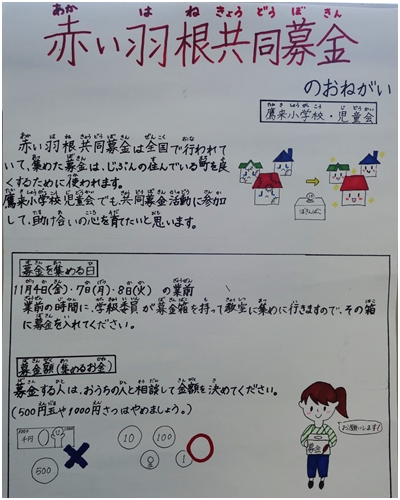 赤い羽根共同募金
のおねがい
鷹来小学校・児童会
赤い羽根共同募金は全国で行われて
いて、集めた募金は、じぶんの住んでいる町を良
くするために使われます。
鷹来小学校児童会でも、共同募金活動に参加
して、助け合いの心を育てたいと思います。
ぼきんばこ
募金を集める日
11月4日(金)・7日(月)・8日(火) の業前
業前の時間に、学級委員が募金箱を持って教室に集めに行きますので、その箱
に募金を入れてください。
募金額(集めるお金)
募金する人は、おうちの人と相談して金額を決めてください。
(500円玉や1000円さつはやめましょう。)
千円
500
10
100
1
お願いします!
募金